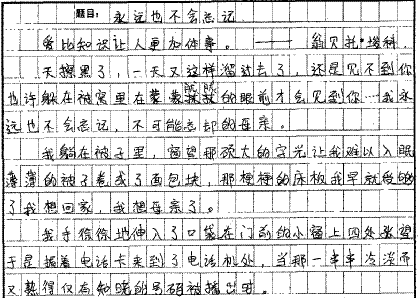 题目：永远也不会忘记
爱比知识让人更加体事。——翁贝托·埃科
天擦黑了，一天又这样溜过去了，还是见不到你
也许躲在被窝里在蒙蒙胧胧的眼前才会见到你…我永
远也不会忘记，不可能忘却的母亲。
我躺在被子里，窗望那颈大的字光让我难以入眠
薄薄的被子卷成了面包块，那梗梗的床板我早就
了我想回家，我想母亲了。
我手徐徐地伸入了口袋在门前的小窗上四处张望
于是握着电话卡来到了电话机处，当那一串串冷淡而
又熟得仅有知晓的号码被播出时。